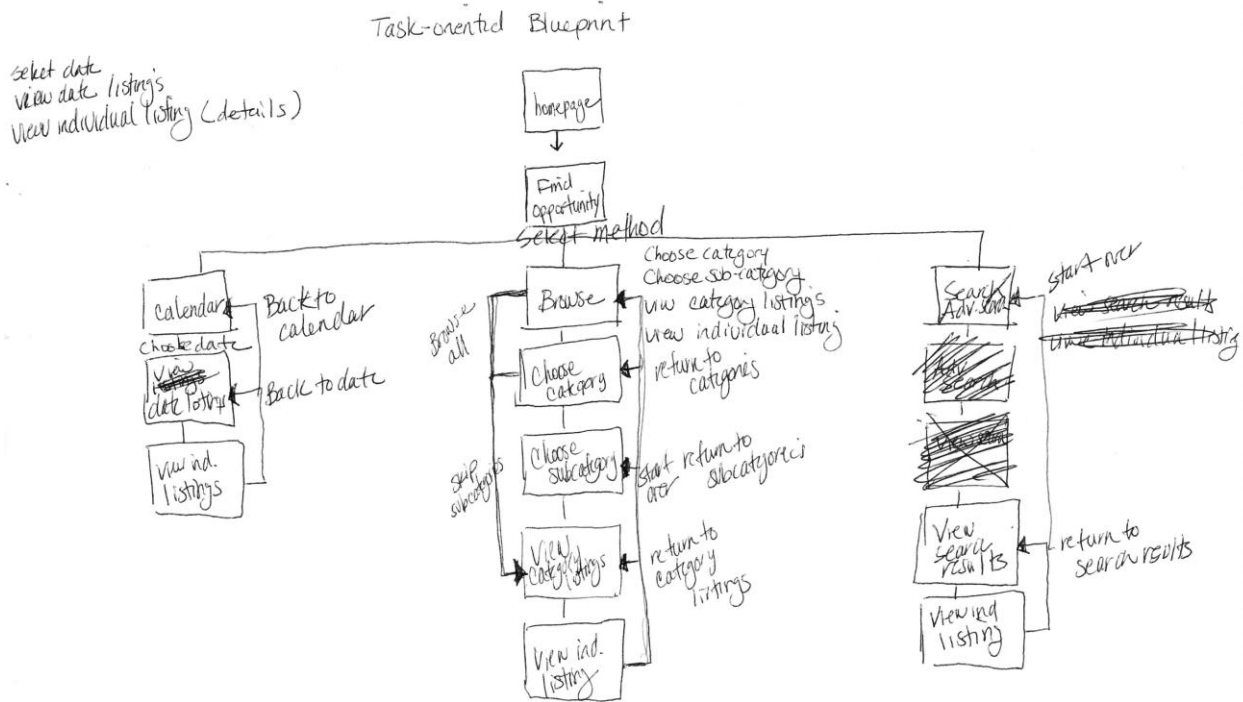 Task-oriented Blueprint
select date
view date listings
view individual listing (details)
homepage
Find
opportunity
Select method
calendar
Back to
calendar
Choose date
View
listings
date listings
Back to date
View ind.
listings
Browse
all
Browse
Choose category
Choose sub-category
view category listings
view individual listing
Choose
category
return to
categories
skip
subcategories
Choose
subcategory
start
over
return to
subcategories
View
category listings
return to
category
listings
View ind.
listing
Search
start over
view search results
view individual listing
Adv.
search
View
search
results
return to
search results
View ind
listing